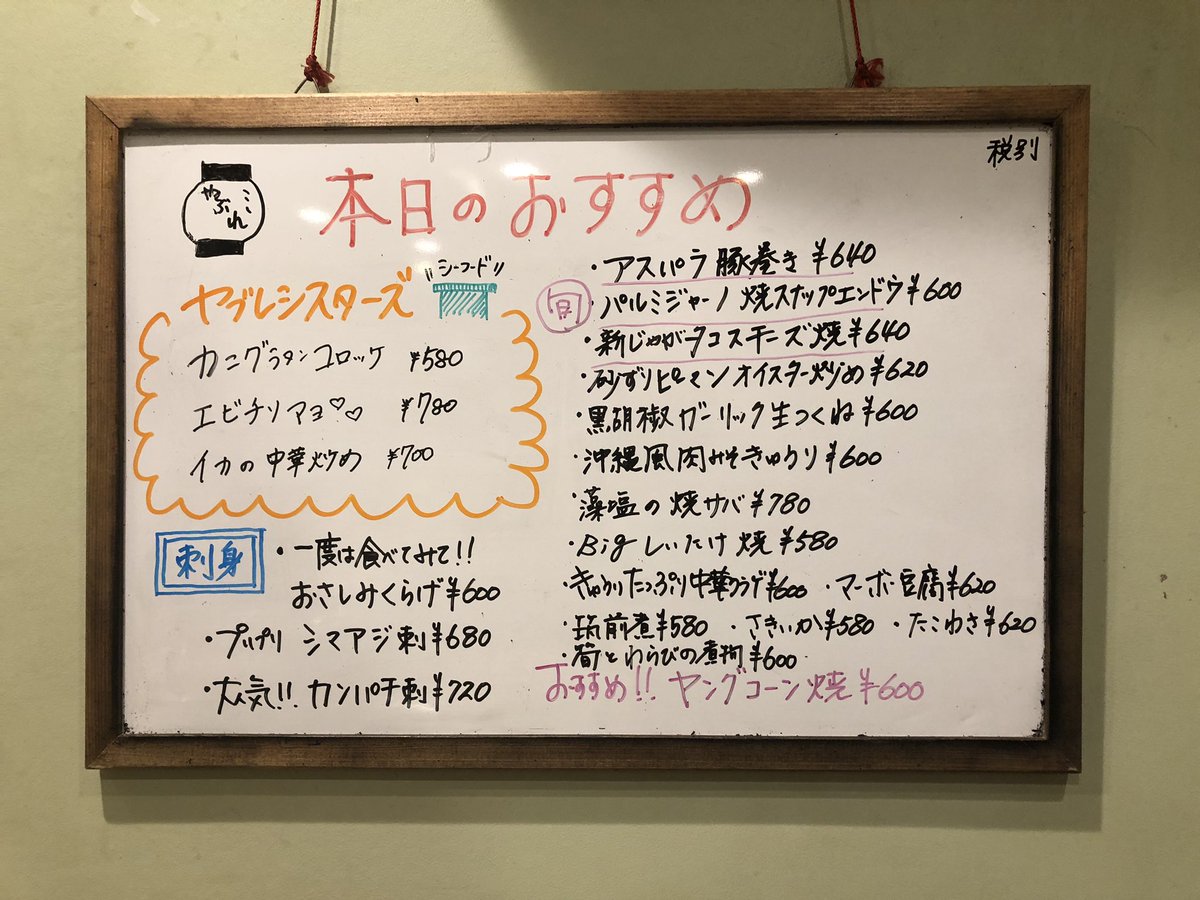 税別
やぶれ
本日のおすすめ
ヤブレシスターズ
"シーフード"
カニグラタンコロッケ ¥580
エビチリマヨ♡♡ ¥780
イカの中華炒め ¥700
刺身
・一度は食べてみて!!
おさしみくらげ¥600
・プリップリ シマアジ刺¥680
・人気!! カンパチ刺¥720
旬
・アスパラ豚巻き ¥640
・パルミジャーノ焼スナップエンドウ¥600
・新じゃがタコスチーズ焼¥640
・砂ずりピーマンオイスター炒め¥620
・黒胡椒ガーリック生つくね¥600
・沖縄風肉みそきゅうり¥600
・藻塩の焼サバ¥780
・Bigしいたけ焼¥580
・きゅうりたっぷり中華クラゲ¥600 ・マーボ豆腐¥620
・筑前煮¥580 ・さきいか¥580 ・たこわさ¥620
・筍とわらびの煮物¥600
おすすめ!! ヤングコーン焼¥600